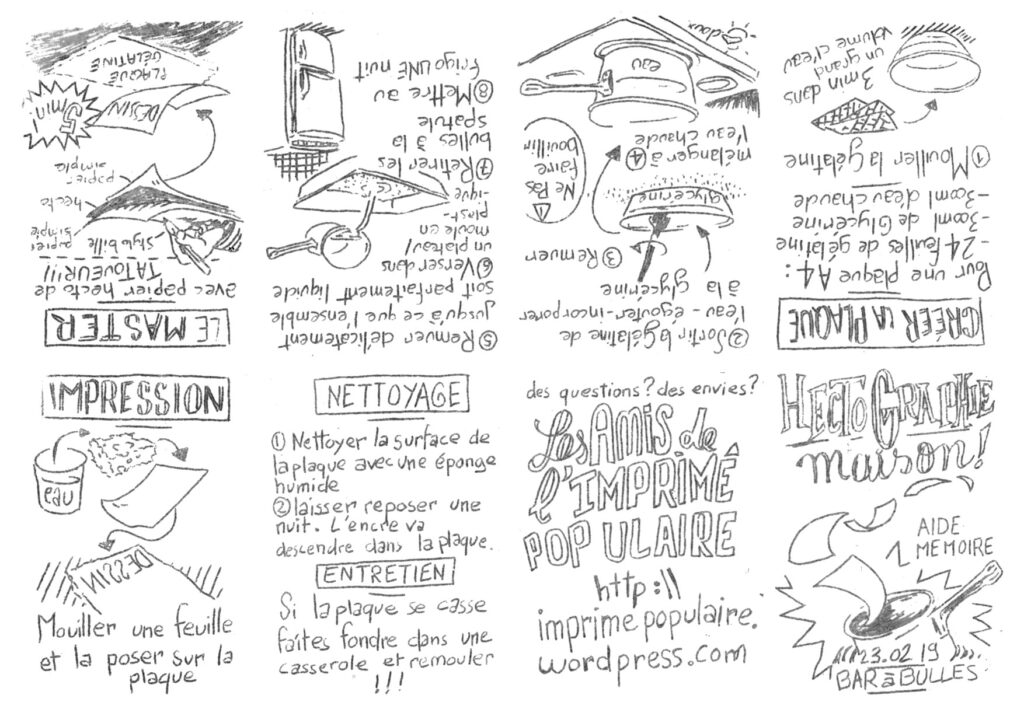 HECTOGRAPHIE
maison!
AIDE
MEMOIRE
23.02 19
BAR à BULLES
CRÉER LA PLAQUE
Pour une plaque A4:
-24 feuilles de gélatine
-300ml de Glycérine
-300ml d'eau chaude
① Mouiller la Gélatine
3 min dans
un grand
volume d'eau
② Sortir la Gélatine de
l'eau - égouter - incorporer
à la glycérine
③ Remuer
Glycerine
④ mélanger à
l'eau chaude
⚠ Ne Pas
faire
bouillir
eau
doux
⑤ Remuer délicatement
jusqu'à ce que l'ensemble
soit parfaitement liquide
⑥ Verser dans
un plateau/
moule en
plast-
ique
⑦ Retirer les
bulles à la
spatule
⑧ Mettre au
frigo UNE nuit
LE MASTER
avec papier hecto de
TATOUEUR!!!
stylo bille
papier
simple
hecto
papier
simple
5 min
DESSIN
PLAQUE
GÉLATINE
IMPRESSION
eau
DESSIN
Mouiller une feuille
et la poser sur la
plaque
NETTOYAGE
① Nettoyer la surface de
la plaque avec une éponge
humide
② laisser reposer une
nuit. L'encre va
descendre dans la plaque.
ENTRETIEN
Si la plaque se casse
faites fondre dans une
casserole et remouler
!!!
des questions? des envies?
Les AMIS de
l'IMPRIMÉ
POPULAIRE
http://
imprimepopulaire.
wordpress.com